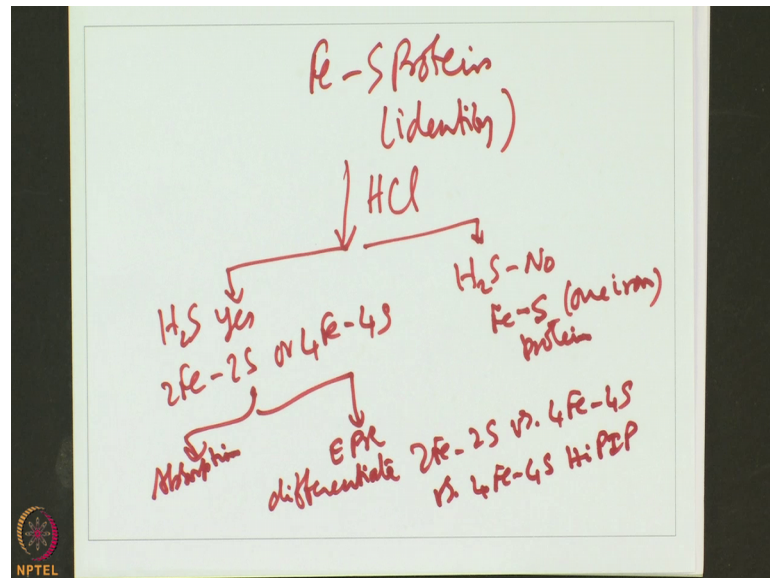 Fe-S Protein
(identity)
HCl
H₂S yes
2Fe-2S or 4Fe-4S
H₂S-No
Fe-S (one iron)
protein
Absorption
EPR
differentiate 2Fe-2S vs. 4Fe-4S
vs. 4Fe-4S HiPIP
NPTEL